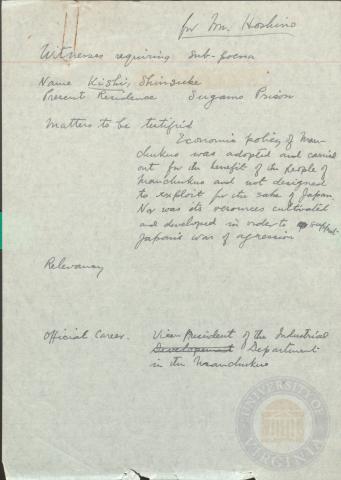 for Mr. Hoshino
Witnesses requiring sub-poena
Name Kishi, Shinsuke
Present Residence Sugamo Prison
Matters to be testified
Economic policy of Man-
chukuo was adopted and carried
out for the benefit of the people of
Manchukuo and not designed
to exploit for the sake of Japan.
Nor was its resources cultivated
and developed in order to support
Japan's war of agression
Relevancy
Official Career. Vice President of the Industrial
Development Department
in the Manchukuo
UNIVERSITY OF VIRGINIA